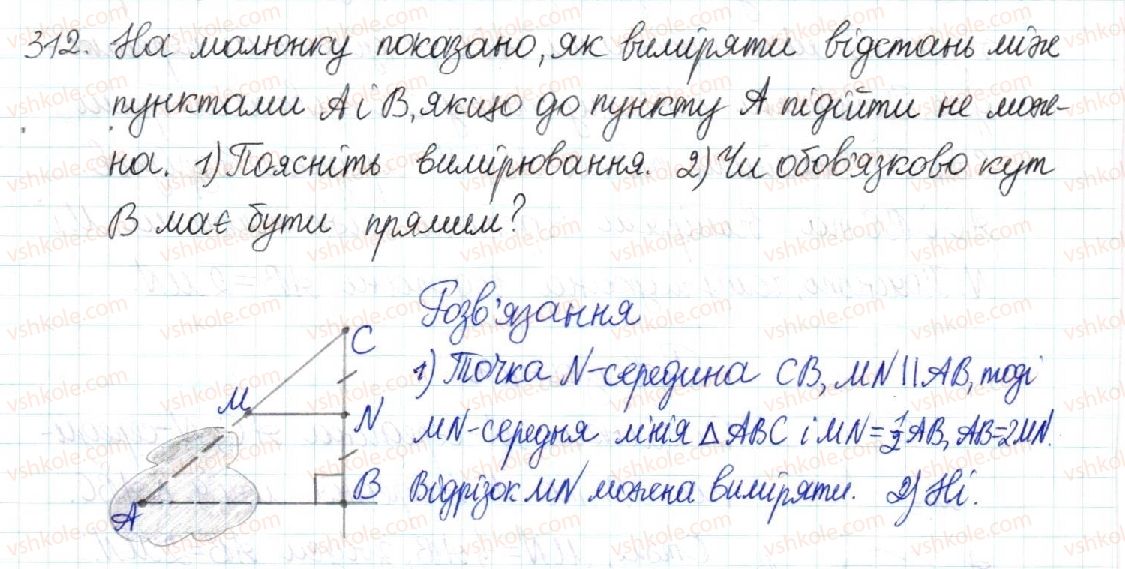 312. На малюнку показано, як виміряти відстань між
пунктами A і B, якщо до пункту A підійти не мож-
на. 1) Поясніть вимірювання. 2) Чи обов'язково кут
B має бути прямим?
Розв'язання
1) Точка N-середина CB, MN || AB, тоді
MN-середня лінія △ABC і MN=½AB, AB=2MN.
Відрізок MN можна виміряти. 2) Ні.
C
M
N
B
A
vshkole.com